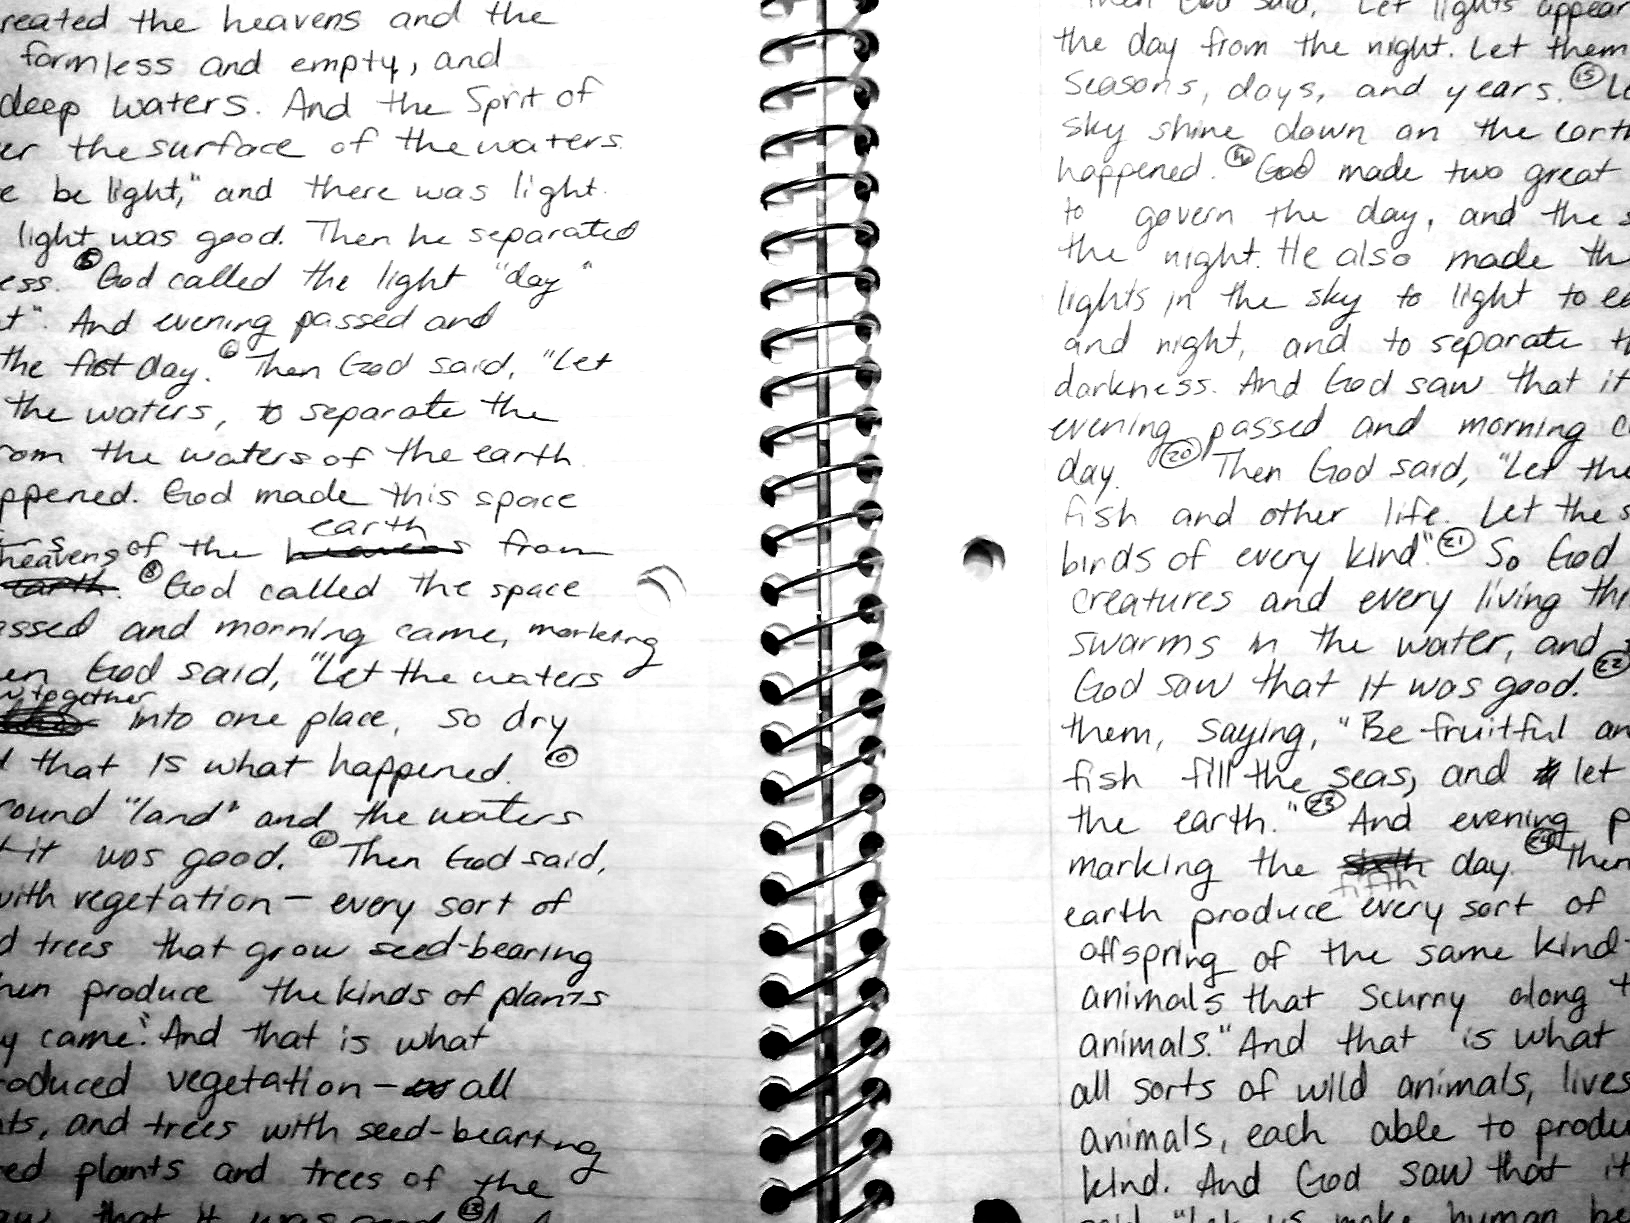 reated the heavens and the
formless and empty, and
deep waters. And the Sprit of
er the surface of the waters.
e be light," and there was light.
light was good. Then he separated
ess. ⑤ God called the light "day"
t". And evening passed and
the first day. ⑥ Then God said, "Let
the waters, to separate the
rom the waters of the earth
ppened. God made this space
earth
heavens of the heavens from
earth. ⑧ God called the space
assed and morning came, marking
en God said, "Let the waters
together
into one place, so dry
d that is what happened. ⑩
round "land" and the waters
t it was good. ⑪ Then God said,
with vegetation – every sort of
d trees that grow seed-bearing
hen produce the kinds of plants
y came". And that is what
roduced vegetation – all
ts, and trees with seed-bearing
ed plants and trees of the
aw that it was good ⑬
Then God said, "Let lights appear
the day from the night. Let them
seasons, days, and years. ⑮ Le
sky shine down on the earth
happened. ⑯ God made two great
to govern the day, and the s
the night. He also made th
lights in the sky to light to ea
and night, and to separate th
darkness. And God saw that it
evening passed and morning c
day. ⑳ Then God said, "Let the
fish and other life. Let the s
birds of every kind." ㉑ So God
creatures and every living thi
swarms in the water, and
God saw that it was good. ㉒
them, saying, "Be fruitful an
fish fill the seas, and let
the earth." ㉓ And evening p
marking the sixth day. ㉔ Then
fifth
earth produce every sort of
offspring of the same kind-
animals that scurry along t
animals." And that is what
all sorts of wild animals, lives
animals, each able to produ
kind. And God saw that it
said, "Let us make human be